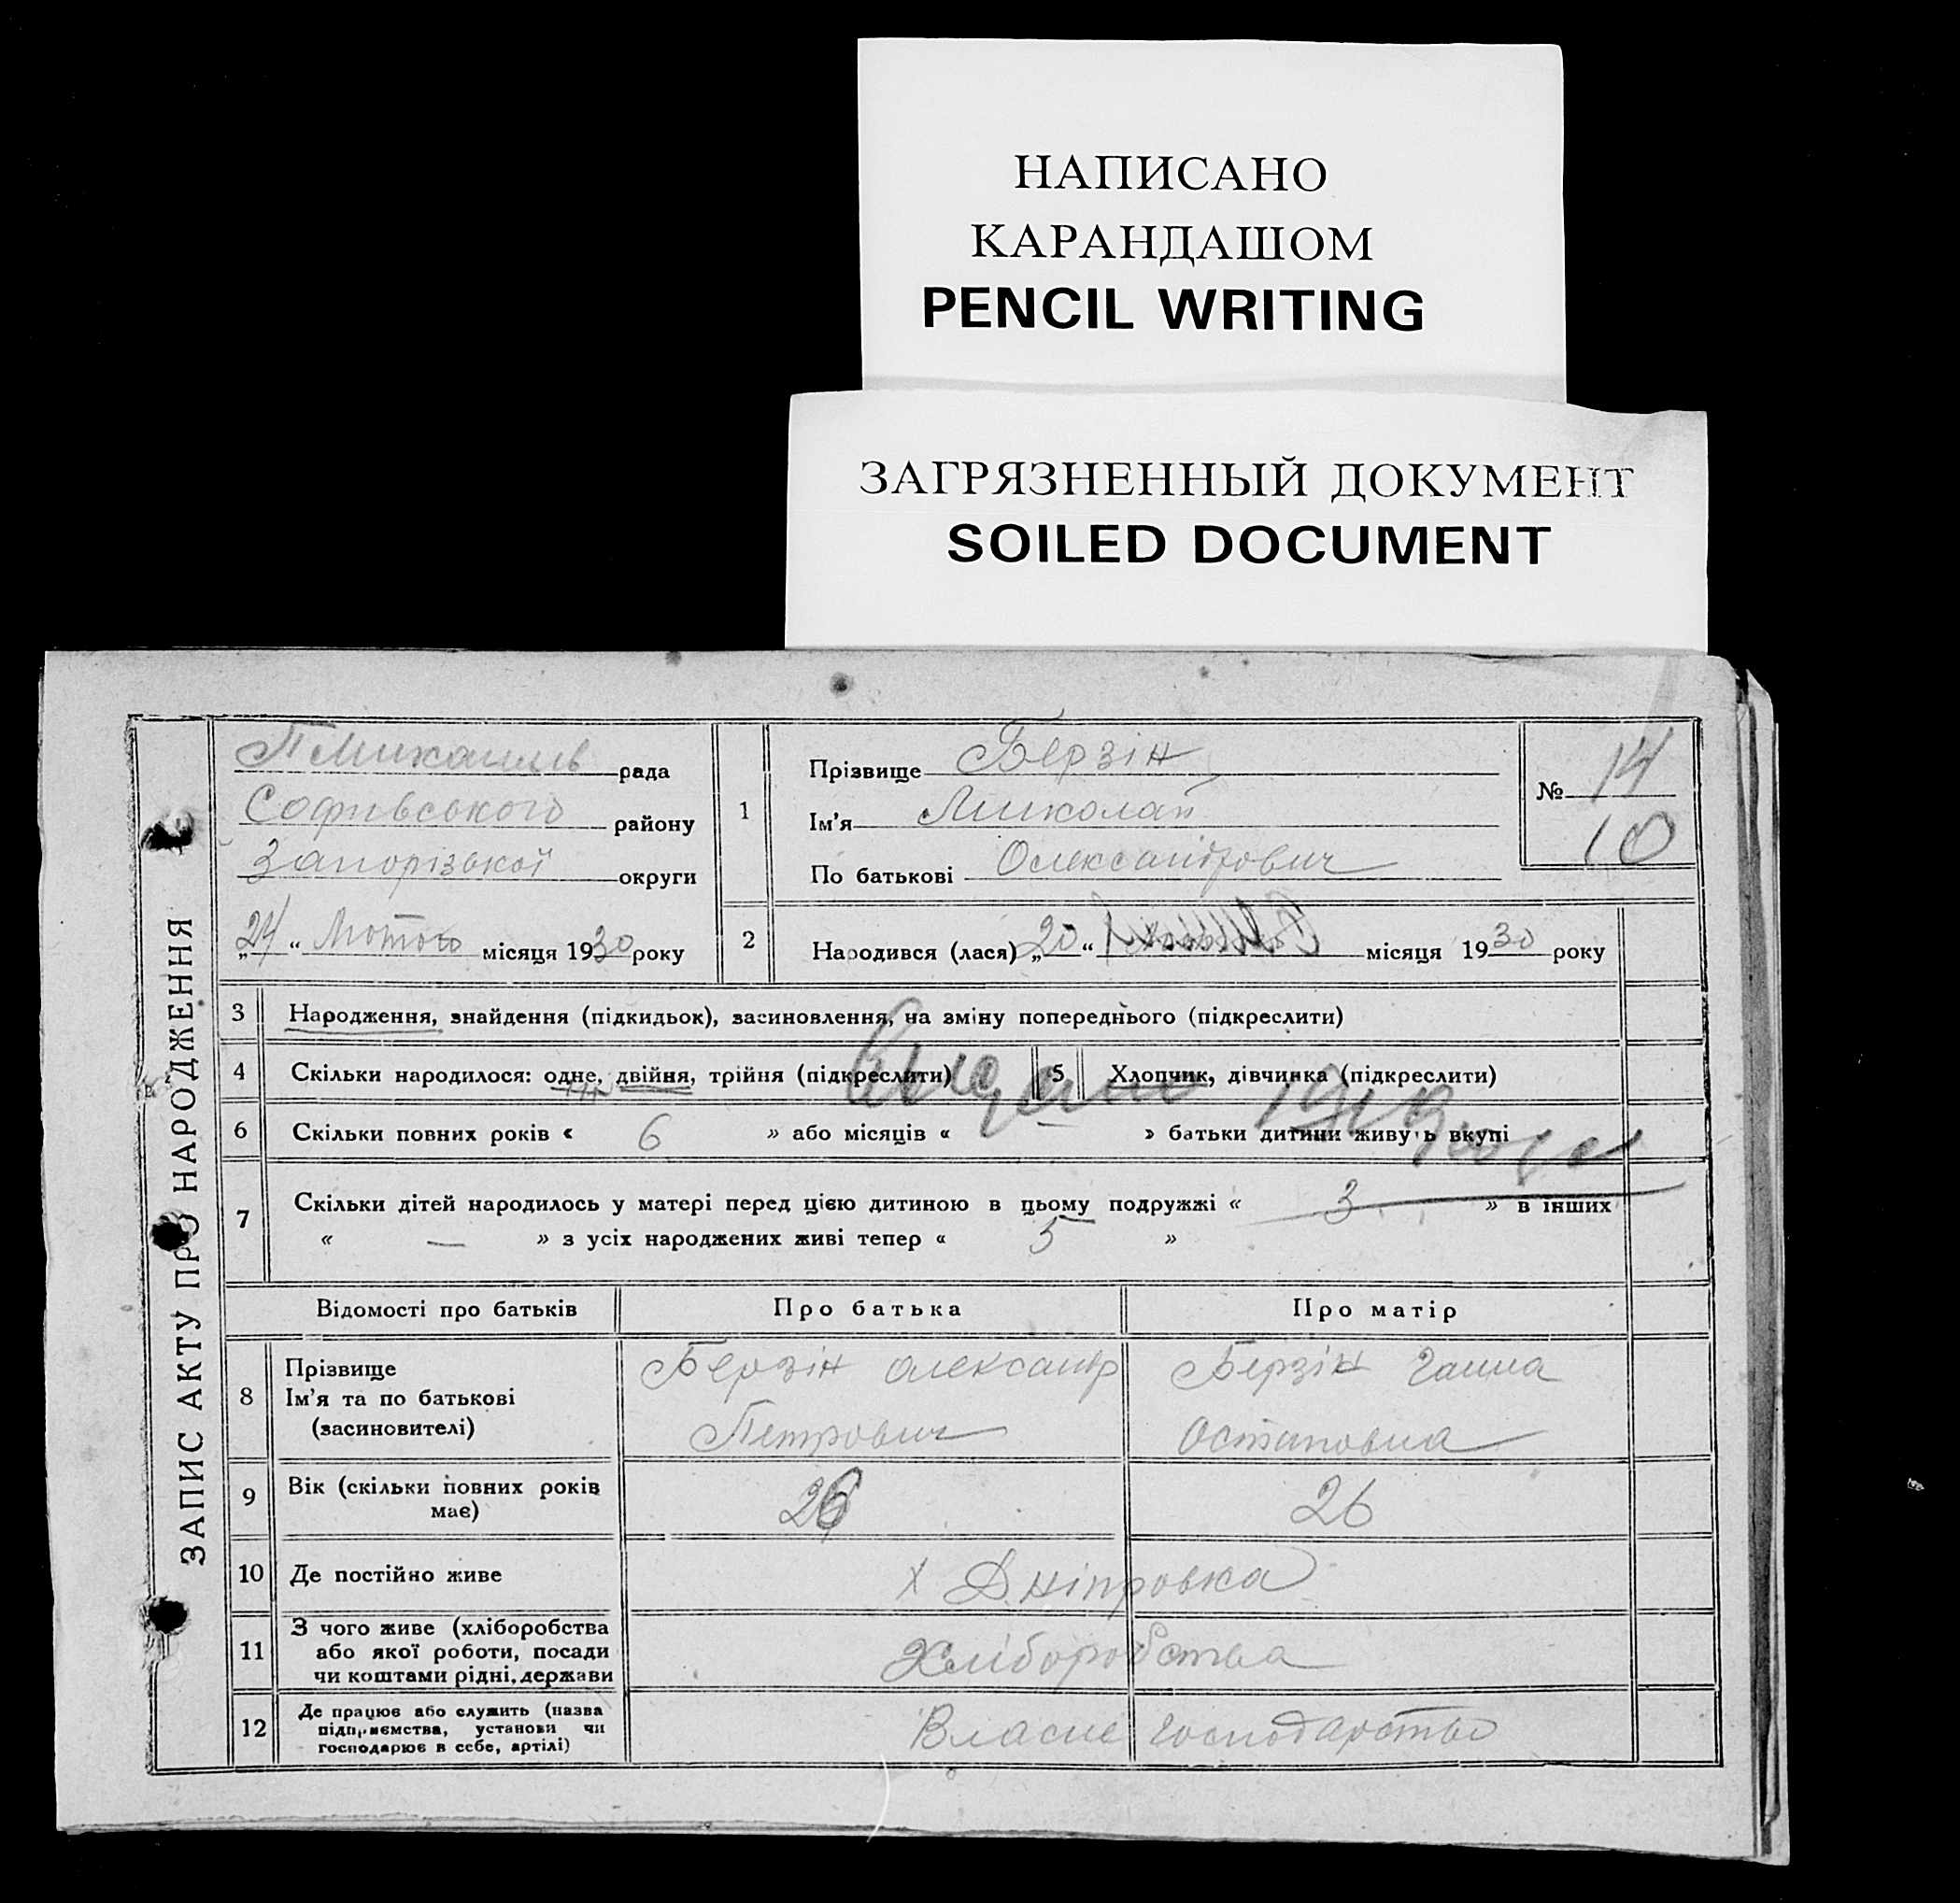 НАПИСАНО
КАРАНДАШОМ
PENCIL WRITING
ЗАГРЯЗНЕННЫЙ ДОКУМЕНТ
SOILED DOCUMENT
ЗАПИС АКТУ ПРО НАРОДЖЕННЯ
рада
Софивського району
Запорізької округи
„24“ Лютого місяця 1930 року
1
Прізвище Берзін
Ім'я Миколай
По батькові Олександрович
№ 14
10
2 Народився (лася) „20“ місяця 1930 року
3 Народження, знайдення (підкидьок), засиновлення, на зміну попереднього (підкреслити)
4 Скільки народилося: одне, двійня, трійня (підкреслити) 5 Хлопчик, дівчинка (підкреслити)
6 Скільки повних років « 6 » або місяців « — » батьки дитини живуть вкупі
7 Скільки дітей народилось у матері перед цією дитиною в цьому подружжі « 3 » в інших
« — » з усіх народжених живі тепер « 5 »
Відомості про батьків Про батька Про матір
8 Прізвище
Ім'я та по батькові
(засиновителі)
Берзін Олександр
Петрович
Берзін Ганна
Остаповна
9 Вік (скільки повних років
має)
26 26
10 Де постійно живе х Дніпровка
11 З чого живе (хліборобства
або якої роботи, посади
чи коштами рідні, держави
Хліборобства
12 Де працює або служить (назва
підприємства, установи чи
господарює в себе, артілі)
Власне господарство